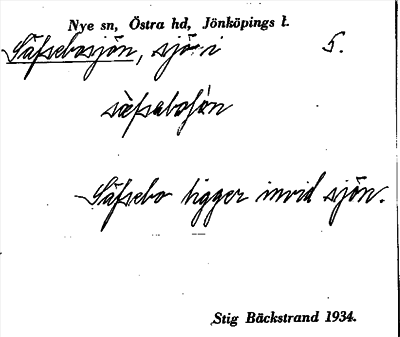 Nye sn, Östra hd, Jönköpings l.
Säfsebosjön, sjö i 5.
säfsebośȯn
Säfsebo ligger invid sjön.
Stig Bäckstrand 1934.